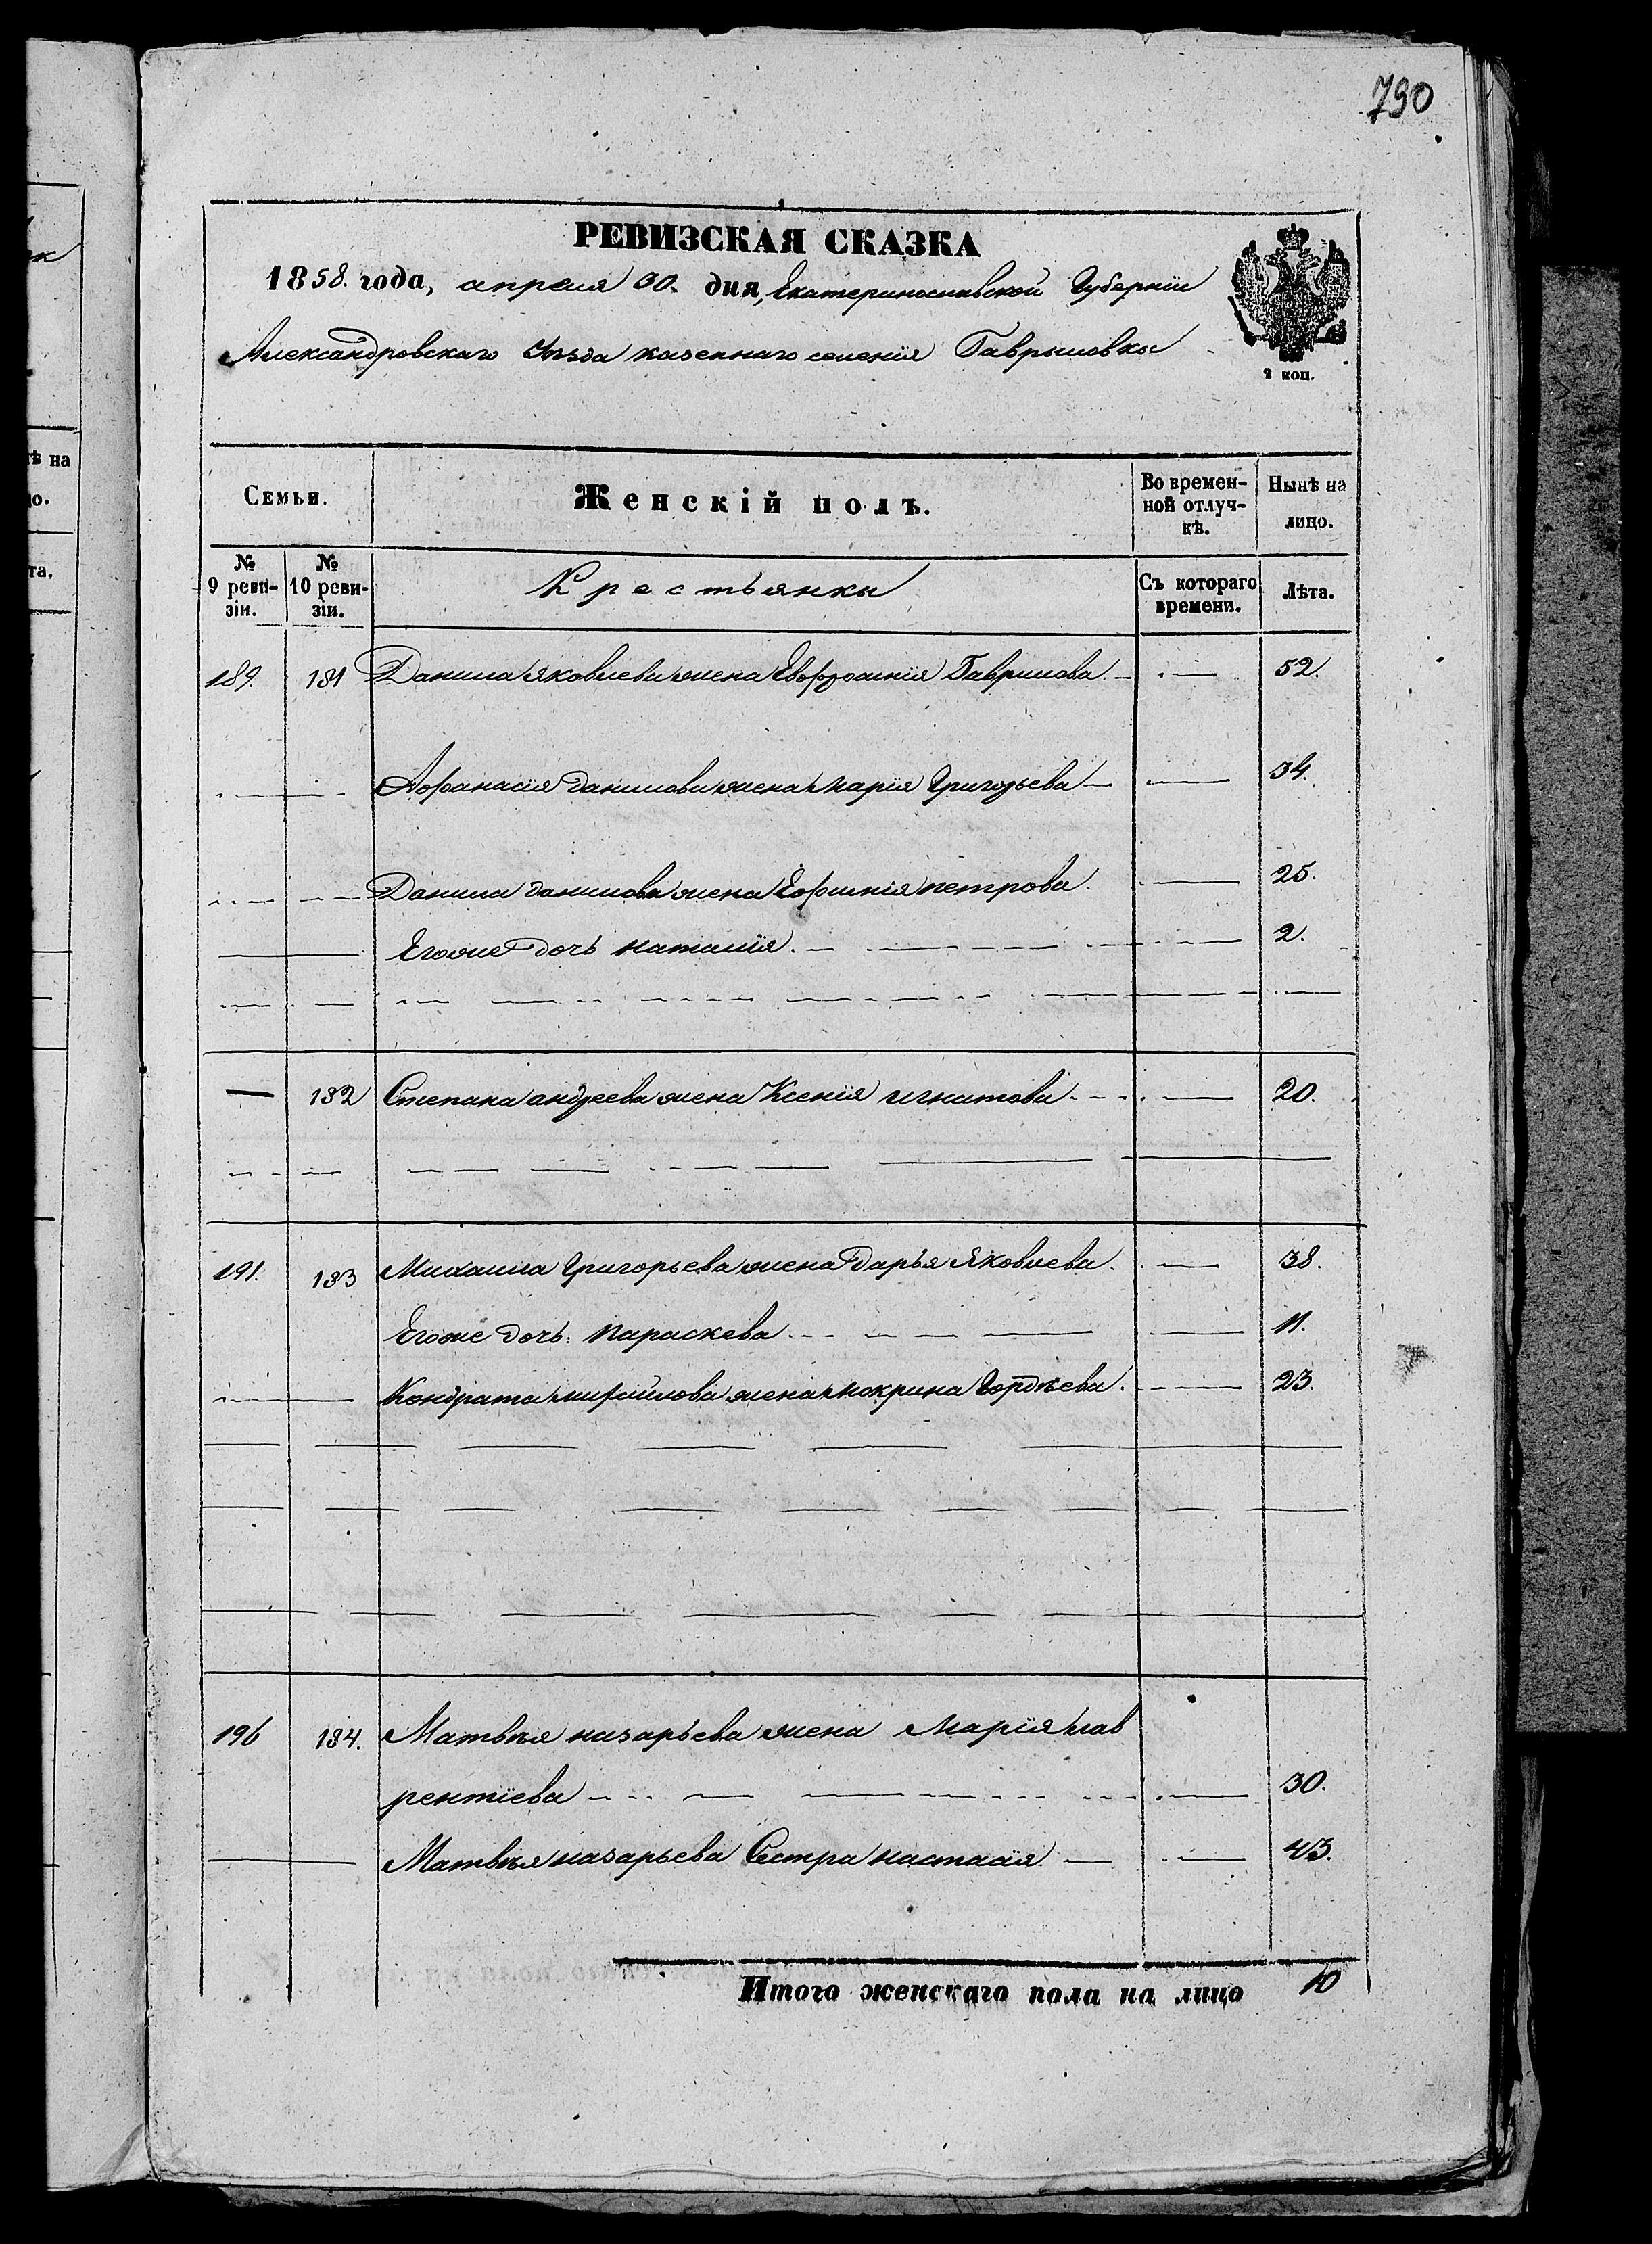 790
РЕВИЗСКАЯ СКАЗКА
1858. года, апреля 30. дня, Екатеринославской Губернїи
Александровскаго Уѣзда казеннаго селенїя Гаврыловки
2 коп.
Семьи. Женскій полъ. Во времен- Нынѣ на
ной отлуч- лицо.
кѣ.
№ № Крестьянки Съ котораго Лѣта.
9 реви- 10 реви- времени.
зіи. зіи.
189. 181 Данила Яковлева жена Евфросинїя Гаврилова. 52.
Афанасїя Данилова жена Марїя Григорьева 34.
Данила Данилова жена Ефимїя петрова. 25.
Егоже дочь наталїя. 2.
182 Степана андреева жена Ксенїя игнатова 20.
191. 183 Михаила Григорьева жена Дарья Яковлева. 38.
Егоже дочь: параскева. 11.
Кондрата михайлова жена мокрина Гордѣева. 23.
196 184. Матвѣя назарьева жена Марїя лав
рентїева 30.
Матвѣя назарьева Сестра настасїя. 43.
Итого женскаго пола на лицо 10
ѣ на
о.
та.